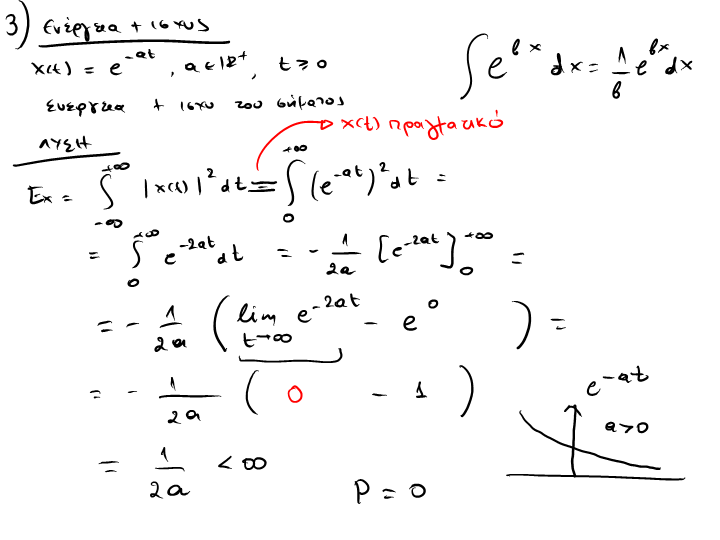 3) Ενέργεια + ισχυς
x(t) = e^{-at}, a ∈ ℝ^+, t ≥ 0
∫ e^{bx} dx = 1/b e^{bx} dx
Ενεργεια + ισχυ του σήματος
→ x(t) πραγματικό
ΛΥΣΗ
Ex = ∫_{-∞}^{+∞} |x(t)|^2 dt = ∫_0^{+∞} (e^{-at})^2 dt =
= ∫_0^{+∞} e^{-2at} dt = - 1/2a [e^{-2at}]_0^{+∞} =
= - 1/2a ( lim_{t→∞} e^{-2at} - e^0 ) =
= - 1/2a ( 0 - 1 )
e^{-at}
a>0
= 1/2a < ∞
P = 0